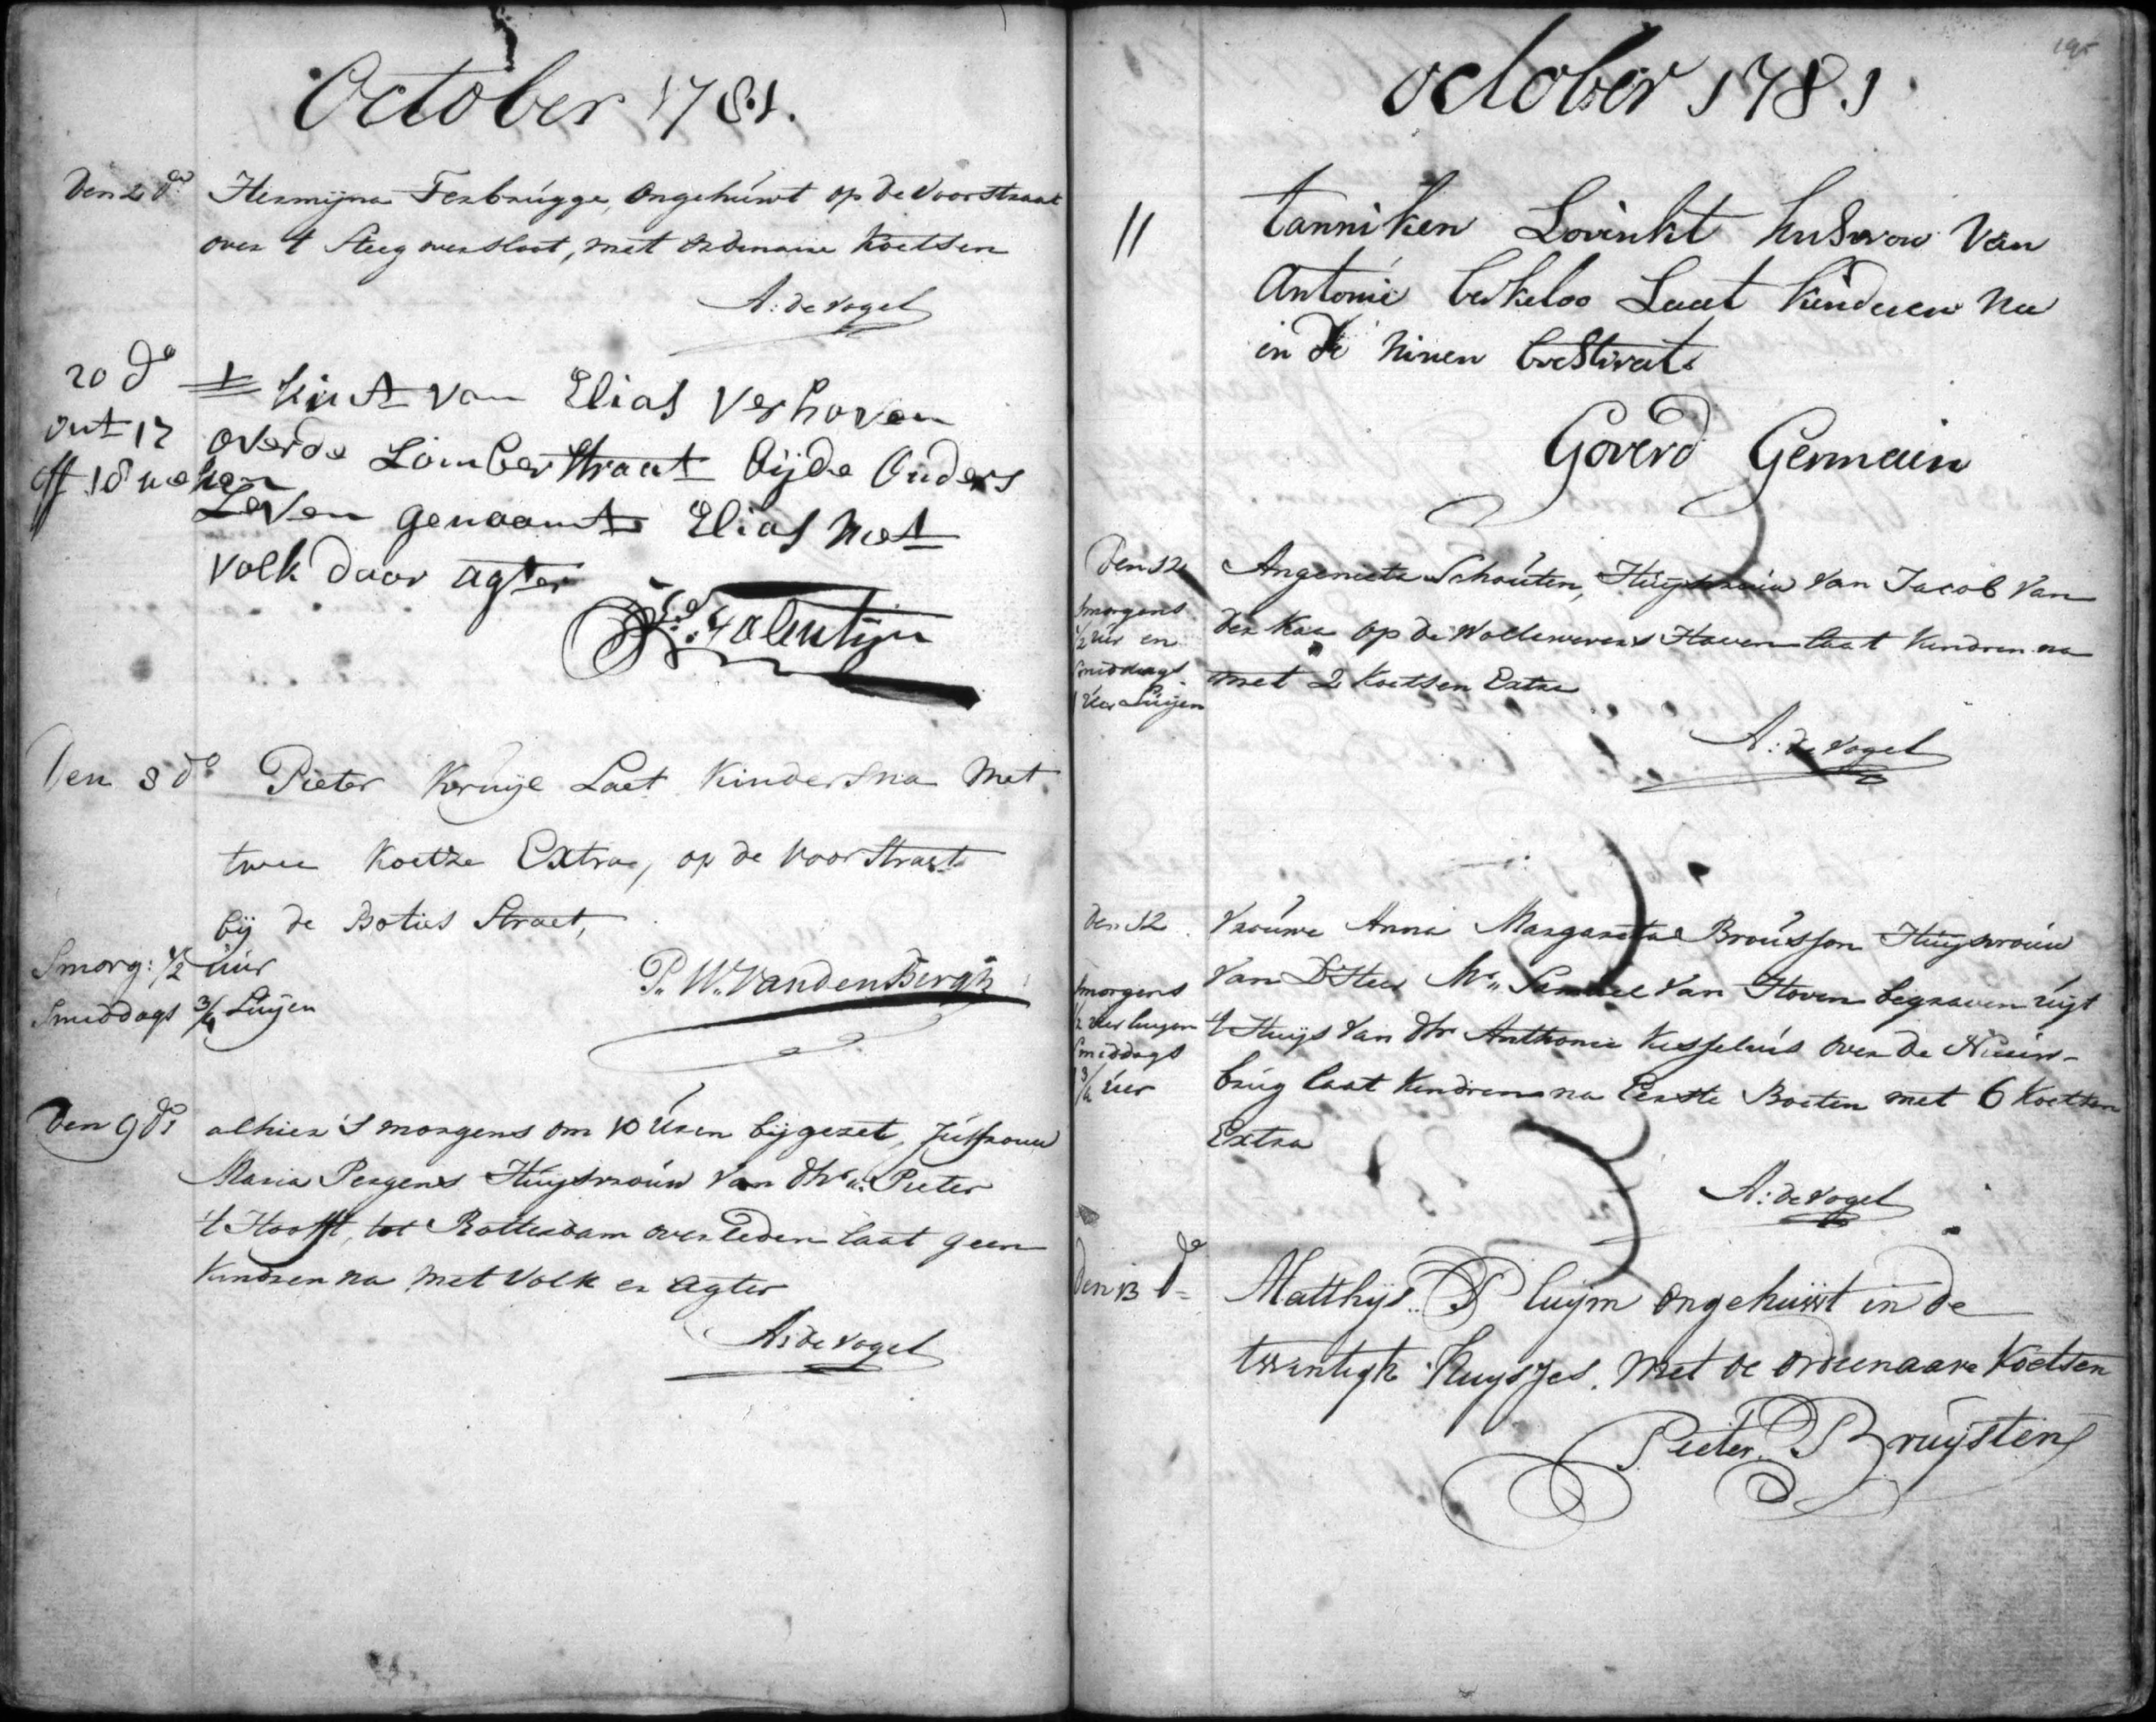 October 1781.
Den 2 do Hermijna Terbrugge, ongehuwt op de Voorstraat
over 't Steegoversloot, met ordenaire Koetsen
A: de Vogel
20 do 1 kint van Elias Verhoven
out 17 over de Lomberstraat bij de Ouders
off 18 weken
Leven genaamt Elias met
volk daar agter
Valentijn
Den 8 do Pieter Kruije Laet Kinders na Met
twee Koetze Extra, op de Voorstraat
bij de Botus Straet,
Smorg: 1/2 uur
P. W. VandenBergh
Smiddags 3/4 Luijen
Den 9 do alhier 's morgens om 10 Uren bijgezet, Jufvrouw
Maria Pergens Huijsvrouw van dhr. Pieter
't Hooft, tot Rotterdam overleden laat geen
Kindren na met Volk er agter
A: de Vogel
195
october 1781
11 tanniken Lovinkt husvrou Van
Antonie berkeloo Laat kinderen na
in de
Goverd Germein
Den 12 Angenieta Schouten, Huijsvrouw van Jacob Van
smorgens
1/2 uur en der Kaa op de Wollewevers Haven laat Kindren na
smiddags
met 2 Koetsen Extra
1 uur Luijen
A: de Vogel
den 12 Vrouwe Anna Margareta Brousson Huijsvrouw
smorgens Van D'Heer Mr. Samuel Van Hoven begraven uijt
1/2 uur luijen 't Huijs Van dhr Anthonie Kesselius over de Nieuw-
smiddags
brug laat Kindren na Eerste Boeten met 6 Koetsen
1 3/4 uur
Extra
A: de Vogel
Den 13 do Matthijs Pluijm ongehuwt in de
twintigh Huysjes. Met de ordeenaare Koetsen
Pieter Bruijstens